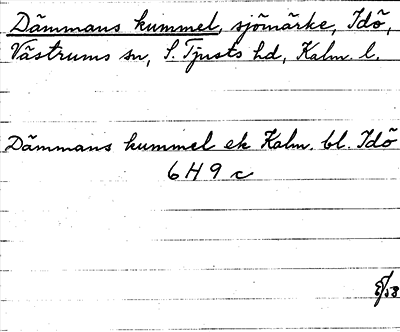 Dämmans kummel, sjömärke, Idö,
Västrums sn, S. Tjusts hd, Kalm. l.
Dämmans kummel ek Kalm. bl. Idö
649 c